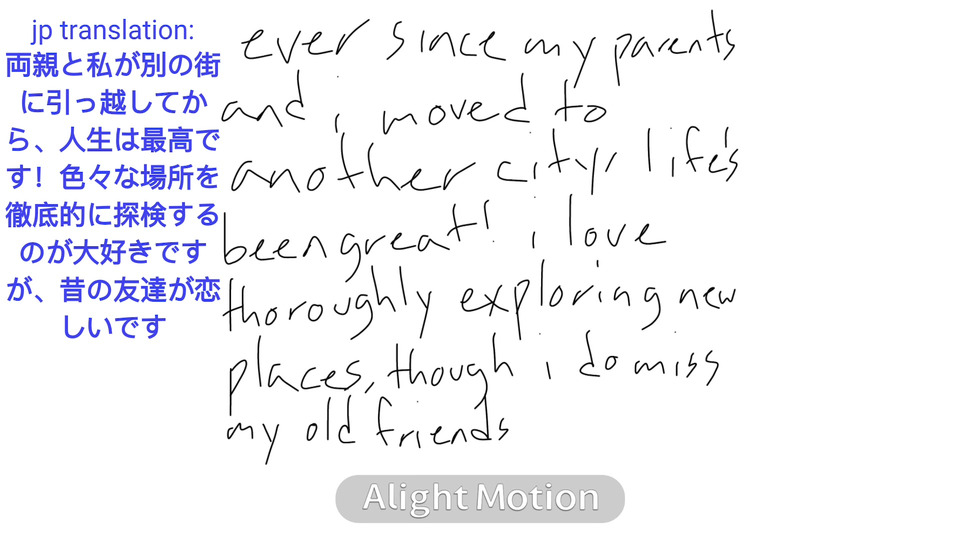 jp translation:
両親と私が別の街
に引っ越してか
ら、人生は最高で
す！色々な場所を
徹底的に探検する
のが大好きです
が、昔の友達が恋
しいです
ever since my parents
and i moved to
another city, life's
been great! i love
thoroughly exploring new
places, though i do miss
my old friends
Alight Motion